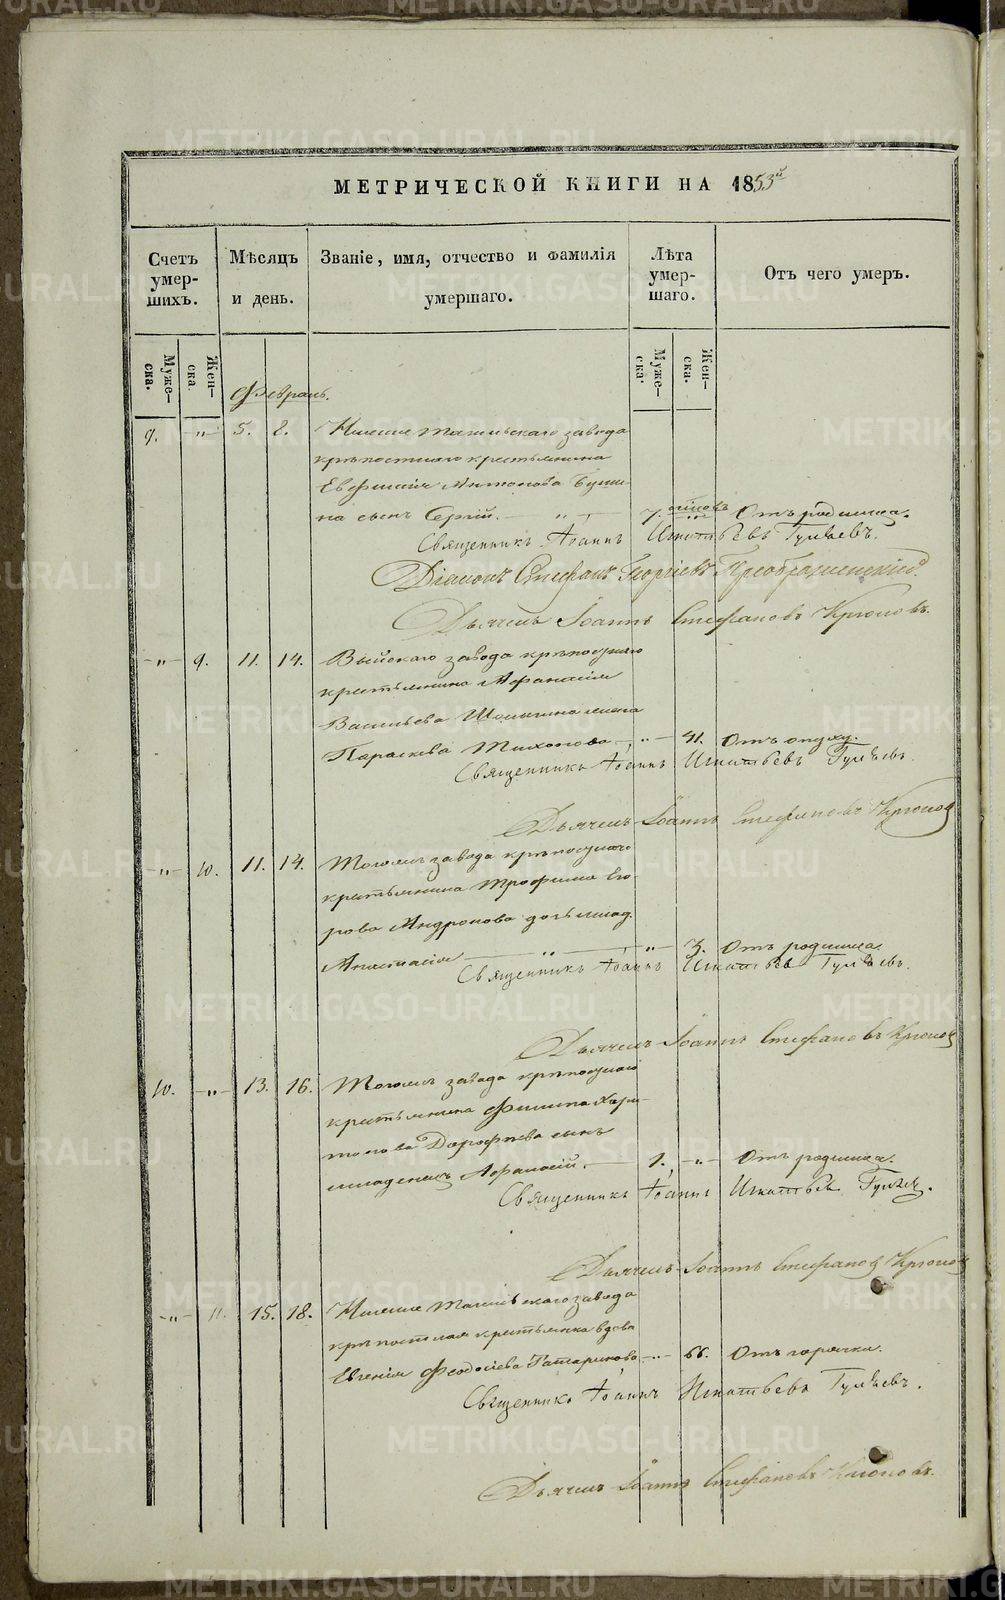 МЕТРИЧЕСКОЙ КНИГИ НА 1853й
Счетъ умер-шихъ.
Мѣсяцъ и день.
Званіе, имя, отчество и фамилія умершаго.
Лѣта умер-шаго.
Отъ чего умеръ.
Муже-ска.
Жен-ска.
Муже-ска.
Жен-ска.
Февраль.
9. -"- 5. 8. Нижне Тагильскаго завода
крѣпостнаго крестьянина
Евфимія Антонова
на сынъ Сергій. 7. Отъ родимца.
Священникъ Іоаннъ Игнатьевъ Гуляевъ.
Діаконъ Стефанъ Георгіевъ Преображенскій.
Дьячекъ Іоаннъ Стефановъ Крюковъ.
-"- 9. 11. 14. Выйскаго завода крѣпостнаго
крестьянина Афанасія
Васильева жена
Параскева Тихонова -"- 41. Отъ опуху.
Священникъ Іоаннъ Игнатьевъ Гуляевъ.
Дьячекъ Іоаннъ Стефановъ Крюковъ
-"- 10. 11. 14. Тогожъ завода крѣпостнаго
крестьянина Трофима Его
рова Андронова дочь млад.
Анастасія -"- 3. Отъ родимца.
Священникъ Іоаннъ Игнатьевъ Гуляевъ.
Дьячекъ Іоаннъ Стефановъ Крюковъ
10. -"- 13. 16. Тогожъ завода крѣпостнаго
крестьянина Филипа Хари-
тонова Дорофѣева сынъ
младенецъ Афанасій. 1. -"- Отъ родимца.
Священникъ Іоаннъ Игнатьевъ Гуляевъ.
Дьячекъ Іоаннъ Стефановъ Крюковъ
-"- 11. 15. 18. Нижне Тагильскаго завода
крѣпостная крестьянка вдова
Евгенія Феодосіева Татаринова -"- 66. Отъ горячки.
Священникъ Іоаннъ Игнатьевъ Гуляевъ.
Дьячекъ Іоаннъ Стефановъ Крюковъ.
METRIKI.GASO-URAL.RU